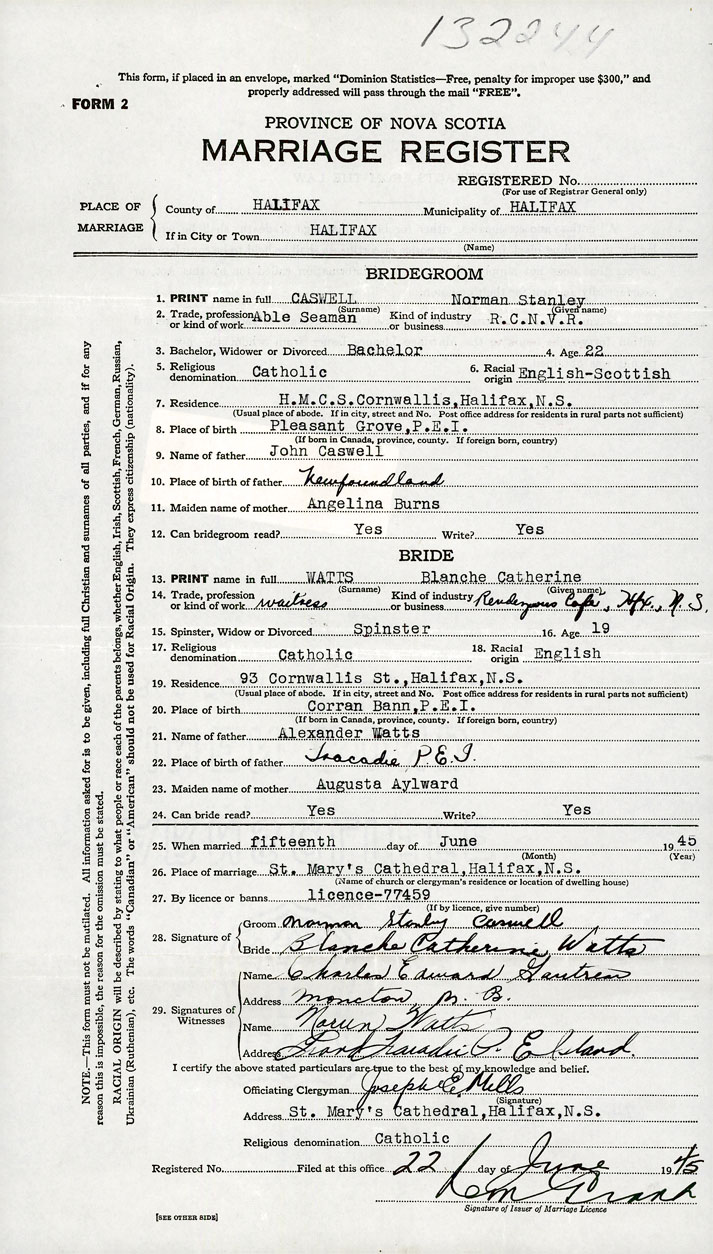 132244
This form, if placed in an envelope, marked "Dominion Statistics—Free, penalty for improper use $300," and
properly addressed will pass through the mail "FREE".
FORM 2
PROVINCE OF NOVA SCOTIA
MARRIAGE REGISTER
REGISTERED No.
(For use of Registrar General only)
PLACE OF MARRIAGE
County of HALIFAX Municipality of HALIFAX
If in City or Town HALIFAX
(Name)
BRIDEGROOM
1. PRINT name in full CASWELL Norman Stanley
(Surname) (Given name)
2. Trade, profession or kind of work Able Seaman Kind of industry or business R.C.N.V.R.
3. Bachelor, Widower or Divorced Bachelor 4. Age 22
5. Religious denomination Catholic 6. Racial origin English-Scottish
7. Residence H.M.C.S.Cornwallis,Halifax,N.S.
(Usual place of abode. If in city, street and No. Post office address for residents in rural parts not sufficient)
8. Place of birth Pleasant Grove,P.E.I.
(If born in Canada, province, county. If foreign born, country)
9. Name of father John Caswell
10. Place of birth of father Newfoundland
11. Maiden name of mother Angelina Burns
12. Can bridegroom read? Yes Write? Yes
BRIDE
13. PRINT name in full WATTS Blanche Catherine
(Surname) (Given name)
14. Trade, profession or kind of work waitress Kind of industry or business Rendezvous Cafe, Hfx., N.S.
15. Spinster, Widow or Divorced Spinster 16. Age 19
17. Religious denomination Catholic 18. Racial origin English
19. Residence 93 Cornwallis St.,Halifax,N.S.
(Usual place of abode. If in city, street and No. Post office address for residents in rural parts not sufficient)
20. Place of birth Corran Bann,P.E.I.
(If born in Canada, province, county. If foreign born, country)
21. Name of father Alexander Watts
22. Place of birth of father Tracadie P.E.I.
23. Maiden name of mother Augusta Aylward
24. Can bride read? Yes Write? Yes
25. When married fifteenth day of June 1945
(Month) (Year)
26. Place of marriage St. Mary's Cathedral,Halifax,N.S.
(Name of church or clergyman's residence or location of dwelling house)
27. By licence or banns licence-77459
(If by licence, give number)
28. Signature of
Groom Norman Stanley Caswell
Bride Blanche Catherine Watts
29. Signatures of Witnesses
Name Charles Edward Gautreau
Address Moncton N.B.
Name Noreen Watts
Address Grand Tracadie P. E Island.
I certify the above stated particulars are true to the best of my knowledge and belief.
Officiating Clergyman Joseph E. Mills
(Signature)
Address St. Mary's Cathedral,Halifax,N.S.
Religious denomination Catholic
Registered No. Filed at this office 22 day of June 1945
Signature of Issuer of Marriage Licence
[SEE OTHER SIDE]
NOTE.—This form must not be mutilated. All information asked for is to be given, including full Christian and surnames of all parties, and if for any
reason this is impossible, the reason for the omission must be stated.
RACIAL ORIGIN will be described by stating to what people or race each of the parents belongs, whether English, Irish, Scottish, French, German, Russian,
Ukrainian (Ruthenian), etc. The words "Canadian" or "American" should not be used for Racial Origin. They express citizenship (nationality).